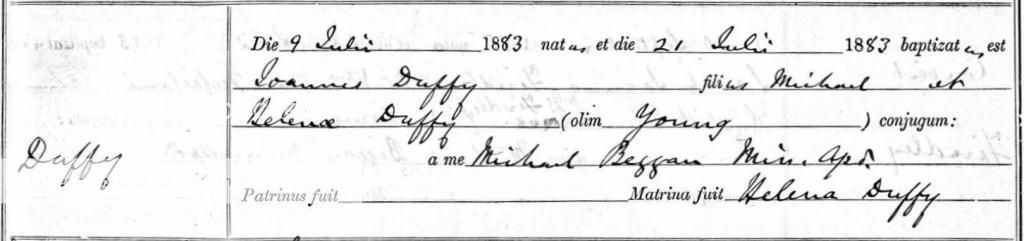 Die 9 Julii 1883 natus et die 21 Julii 1883 baptizatus est
Joannes Duffy filius Michael et
Helenæ Duffy (olim Young) conjugum:
Duffy
a me Michael Beggan Miss. Apos.
Patrinus fuit Matrina fuit Helena Duffy